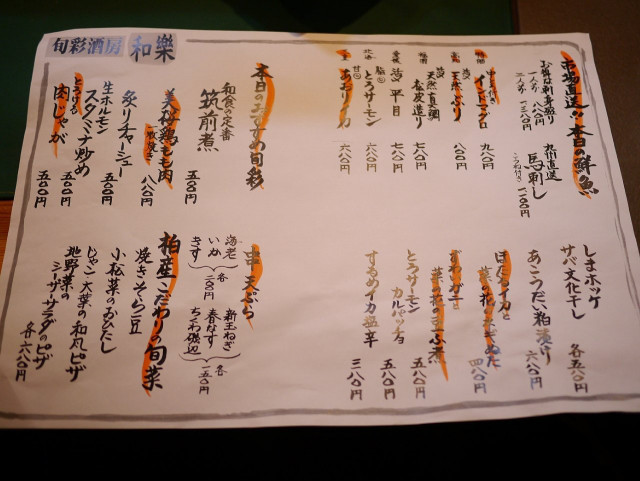 旬彩酒房 和樂
市場直送!!本日の鮮魚
お毎な刺身盛り
一人前 八八〇円
二人前 一三八〇円
九州直送
馬刺し
一一〇〇円
インドマグロ 九八〇円
天然ぶり 八八〇円
天然真鯛
春皮造り 七八〇円
愛媛 活〆 平目 七八〇円
北海 脂のり とろサーモン 六八〇円
甘い あおりイカ 六八〇円
本日のおすすめ旬彩
和食の定番
筑前煮 五〇〇円
美桜鶏もも肉
一枚焼き 八八〇円
炙りチャーシュー 五〇〇円
生ホルモン
スタミナ炒め 五〇〇円
とろける
肉じゃが 五〇〇円
しまホッケ
サバ文化干し 各五八〇円
あこうだい粕漬け 六八〇円
ほたるイカと
菜の花の 四八〇円
ずわいガニと
菜の花の煮
とろサーモン
カルパッチョ 五八〇円
するめイカ塩辛 三八〇円
串天ぷら
海老
いか
きす
各二〇〇円
新玉ねぎ
春なす
ちくわ磯辺
各一五〇円
柏産こだわりの旬菜
焼きそら豆
小松菜のおひたし
じゃこと大葉の和風ピザ
地野菜の
シーザーサラダのピザ
各六八〇円